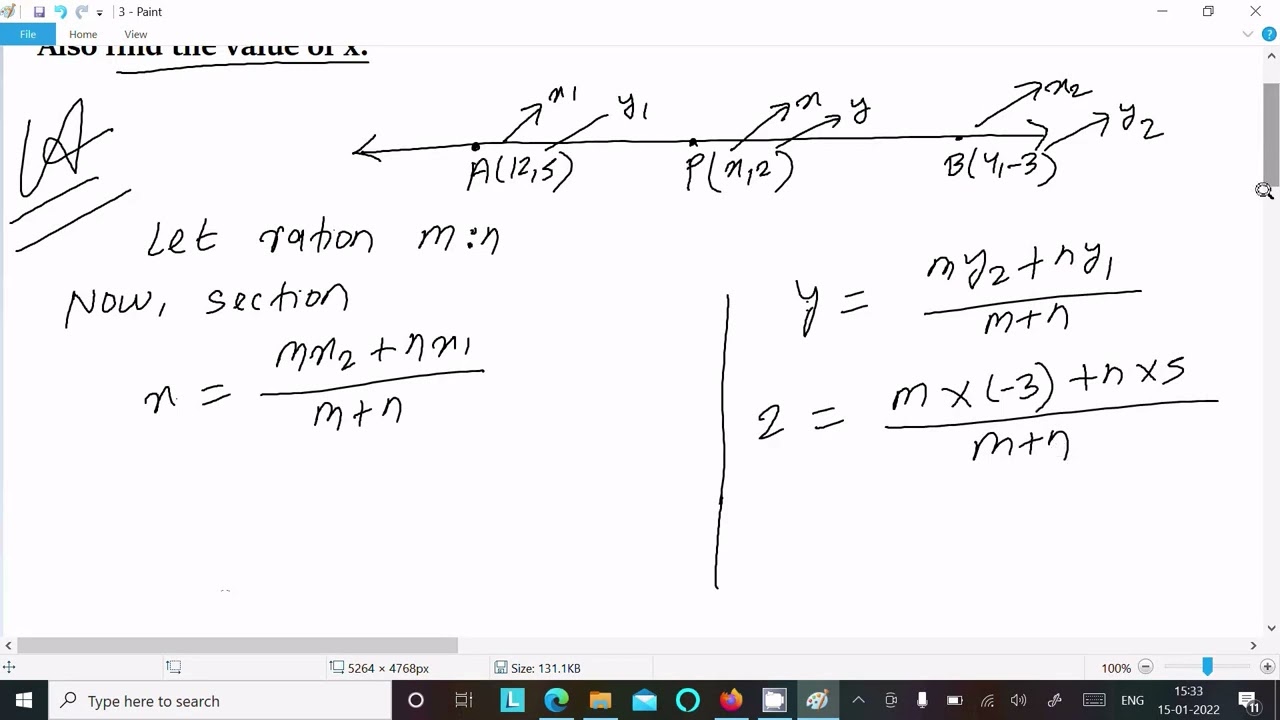 3 - Paint
File Home View
Also find the value of x.
x1 y1 x y x2 y2
A(12,5) P(x,2) B(4,-3)
Let ration m:n
Now, section
x = mx2 + nx1 / m+n
y = my2 + ny1 / m+n
2 = m × (-3) + n × 5 / m+n
5264 × 4768px
Size: 131.1KB
100%
Type here to search
L
ENG
15:33
15-01-2022
11